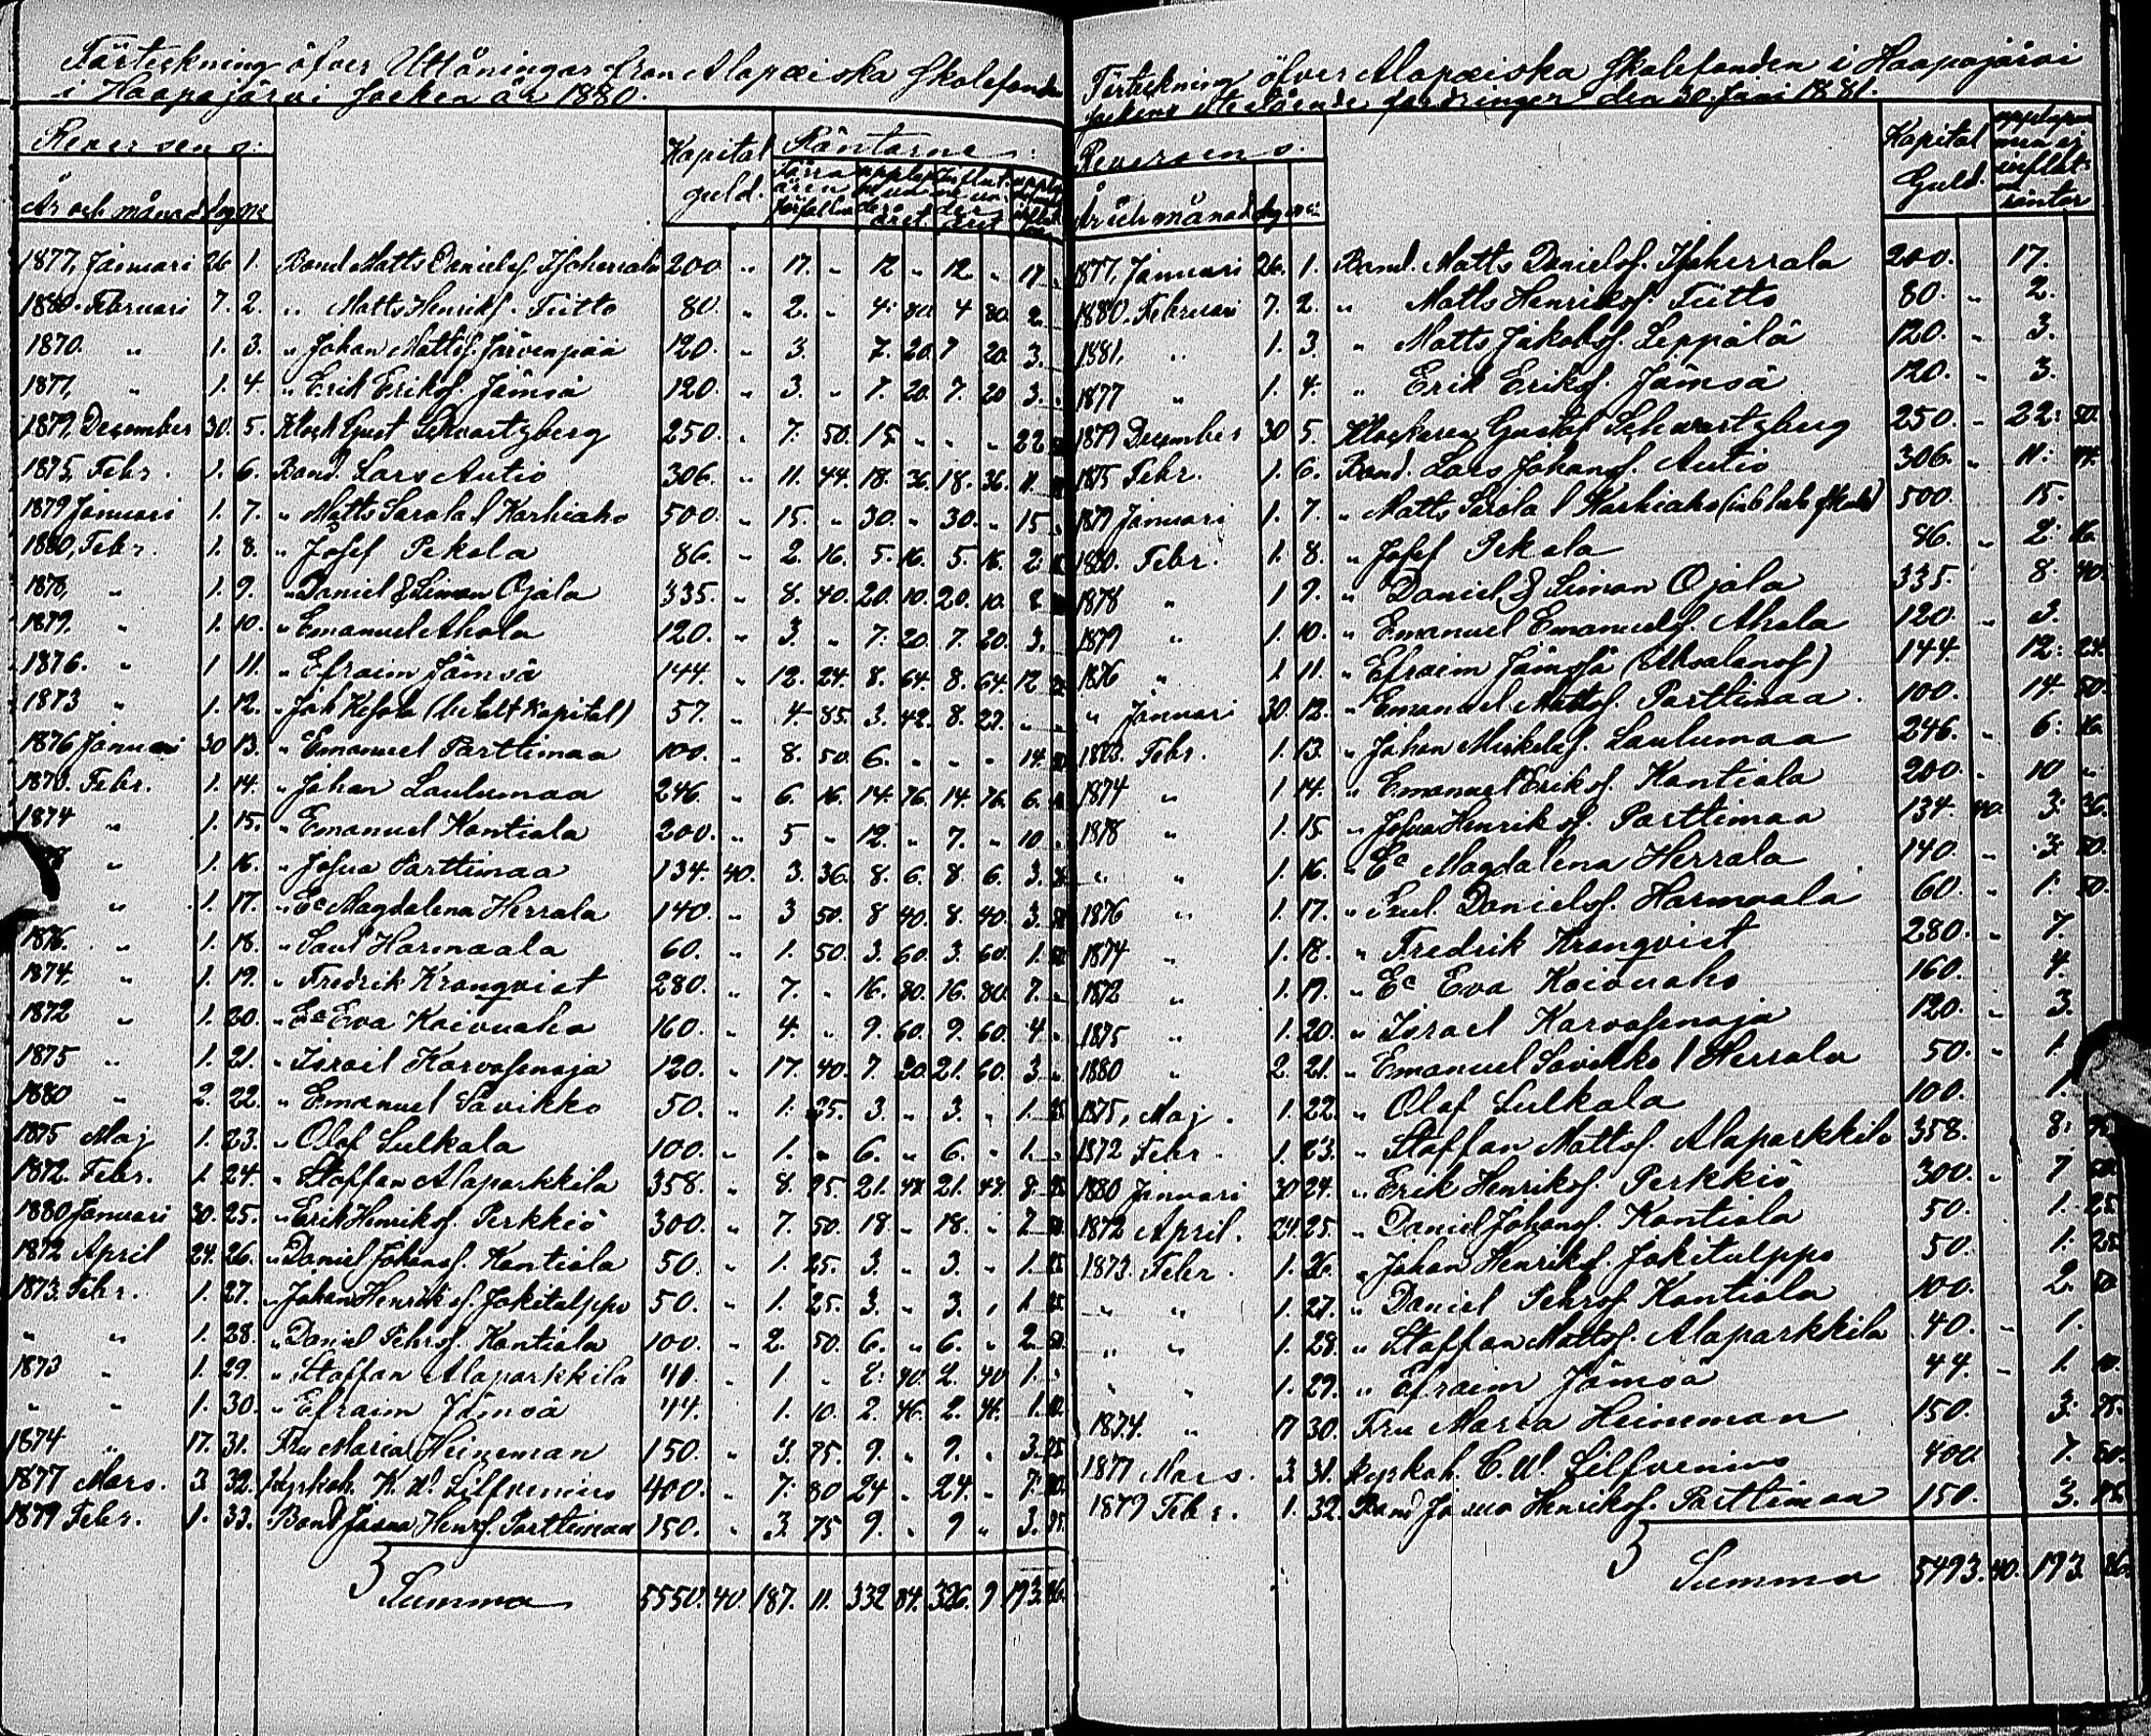 Förteckning öfver Utlåningar från Alapæiska Skolefonden
i Haapajärvi Socken år 1880.
Reversens: Kapital Räntorne:
År och månad dag No guld.
1877, Januari 26 1. Bond Matts Danielsf. Isoherrala 200 " 17. " 12 " 12 " 17 "
1880. Februari 7. 2. " Matts Henriksf. Tiitto 80. " 2. " 4. 80. 4 80. 2
1870. " 1. 3. " Johan Mattsf. Järvenpää 120. " 3. 7. 20. 7 20. 3.
1877, " 1. 4. " Erik Eriksf. Jämsä 120. " 3. " 7. 20. 7. 20 3.
1879, December 30. 5. Klock Gust Schvartzberg 250. " 7. 50. 15. " " " 22
1875, Febr. 1. 6. Bond. Lars Autio 306. " 11. 44. 18. 36. 18. 36. 11.
1879 Januari 1. 7. " Matts Sarola l Karhiaho 500. " 15. " 30. " 30. " 15.
1880, Febr. 1. 8. " Josef Pekola 86. " 2. 16. 5. 16. 5. 16. 2.
1878, " 1. 9. " Daniel & Simon Ojala 335. " 8. 40. 20. 10. 20. 10. 8
1879. " 1. 10. " Emanuel Ahola 120. " 3. " 7. 20. 7. 20. 3.
1876. " 1 11. " Efraim Jämsä 144. " 12. 24. 8. 64. 8. 64. 12
1873 " 1. 12. " Joh Kesola (betalt Kapital) 57. " 4. 85. 3. 42. 8. 27. " "
1876 Januari 30 13. " Emanuel Parttimaa 100. " 8. 50. 6. " " " 14.
1873. Febr. 1. 14. " Johan Laulumaa 246. " 6. 16. 14. 76. 14. 76. 6.
1874 " 1. 15. " Emanuel Kantiola 200. " 5 " 12. " 7. " 10
" 1. 16. " Josua Parttimaa 134. 40. 3. 36. 8. 6. 8. 6. 3.
" 1. 17. " Ea Magdalena Herrala 140. " 3 50. 8 40. 8. 40. 3.
1876. " 1. 18. " Saul Harmaala 60. " 1. 50. 3. 60. 3. 60. 1.
1874, " 1. 19. " Fredrik Kranqvist 280. " 7. " 16. 80. 16. 80. 7.
1872 " 1. 20. " Ea Eva Koivuaho 160. " 4. " 9. 60. 9. 60. 4.
1875 " 1. 21. " Israel Karvosenoja 120. " 17. 40. 7. 20. 21. 60. 3.
1880 " 2. 22. " Emanuel Savikko 50. " 1. 25. 3. " 3. " 1. 25
1875 Maj 1. 23. " Olof Sulkala 100. " 1. " 6. " 6. " 1.
1872. Febr. 1. 24. " Staffan Alaparkkila 358. " 8. 95. 21. 48. 21. 48. 8.
1880 Januari 30. 25. " Erik Henriksf. Perkkiö 300. " 7. 50. 18 " 18. " 7
1872 April 24. 26. " Daniel Johansf. Kantiola 50. " 1. 25. 3. " 3. " 1.
1873. Febr. 1. 27. " Johan Henriksf. Jokitulppo 50. " 1. 25. 3. " 3. " 1 25
" " 1. 28. " Daniel Pehrsf. Kantiola 100. " 2. 50. 6. " 6. " 2. 50.
1873 " 1. 29. " Staffan Alaparkkila 40. " 1. " 2. 40. 2. 40 1.
" " 1. 30. " Efraim Jämsä 44. 1. 10. 2. 2. 1. 10.
1874 " 17. 31. Fru Maria Heineman 150. " 3. 75. 9. " 9. " 3. 75
1877 Mars. 3 32. Kyrkoh. K. W. Lilfvenius 400. " 7. 80 24 " 24. " 7.
1879 Febr. 1. 33. Bond Josua Henrsf. Parttimaa 150. " 3. 75 9. " 9 " 3. 75.
Summa 5550. 40. 187. 11. 332 84. 326. 9 193. 86.
Förteckning öfver Alapæiska Skolefonden i Haapajärvi
Sockens utestående fordringar den 30 Juni 1881.
Reversens. Kapital Guld. räntor
År och månad dag No
1877, Januari 26. 1. Bond. Matts Danielsf. Isoherrala 200. 17.
1880. Februari 7. 2. " Matts Henriksf. Tiitto 80. " 2.
1881, " 1. 3. " Matts Jakobsf. Leppälä 120. " 3.
1877 " 1. 4. " Erik Eriksf. Jämsä 120. " 3.
1879 December 30 5. Klockaren Gustaf Schwartzberg 250. " 22: 50.
1875 Febr. 1. 6. Bond. Lars Johansf. Autio 306. " 11: 44.
1879 Januari 1. 7. " Matts Sarola l Karhiaho 500. 15.
1880. Febr. 1. 8. " Josef Pekola 86. " 2: 16.
1878 " 1 9. " Daniel & Simon Ojala 335. 8. 40.
1879 " 1. 10. " Emanuel Emanuelsf. Ahola 120. " 3.
1876 " 1. 11. " Efraim Jämsä 144. 12: 24.
" Januari 30. 12. " Emanuel Mattsf. Parttimaa. 100. 14. 50.
Febr. 1. 13. " Johan Mickelsf. Laulumaa 246. " 6: 16.
1874 " 1 14. " Emanuel Eriksf. Kantiola 200. " 10 "
1878 " 1. 15. " Josua Henriksf. Parttimaa 134. 40. 3: 36.
" " 1. 16. " Ea Magdalena Herrala 140. " 3. 50.
1876 " 1. 17. " Saul Danielsf. Harmaala 60. " 1. 50.
1874 " 1. 18. " Fredrik Kranqvist 280. " 7.
1872 " 1. 19. " Ea Eva Koivuaho 160. 4.
1875 " 1. 20. " Israel Karvosenoja 120. " 3.
1880 " 2. 21. " Emanuel Savikko l Herrala 50. " 1
1875, Maj. 1. 22. " Olof Sulkala 100. 1.
1872 Febr. 1. 23. " Staffan Mattsf. Alaparkkila 358. 8:
1880 Januari 30 24. " Erik Henriksf. Perkkiö 300. " 7 50.
1872 April. 24. 25. " Daniel Johansf. Kantiola 50. 1. 25.
1873. Febr. 1. 26. " Johan Henriksf. Jokitulppo 50. 1. 25.
" " 1. 27. " Daniel Pehrsf. Kantiola 100. 2. 50
" " 1. 28. " Staffan Mattsf. Alaparkkila 40. " 1.
" " 1. 29. " Efraim Jämsä 44. " 1. 10.
1874. " 17 30. Fru Maria Heineman 150. 3. 75.
1877 Mars. 3. 31. Kyrkoh. C. W. Lilfvenius 400. 7.
1879 Febr. 1. 32. Bond Josua Henriksf. Parttimaa 150. 3. 75.
Summa 5493. 40. 193. 86.